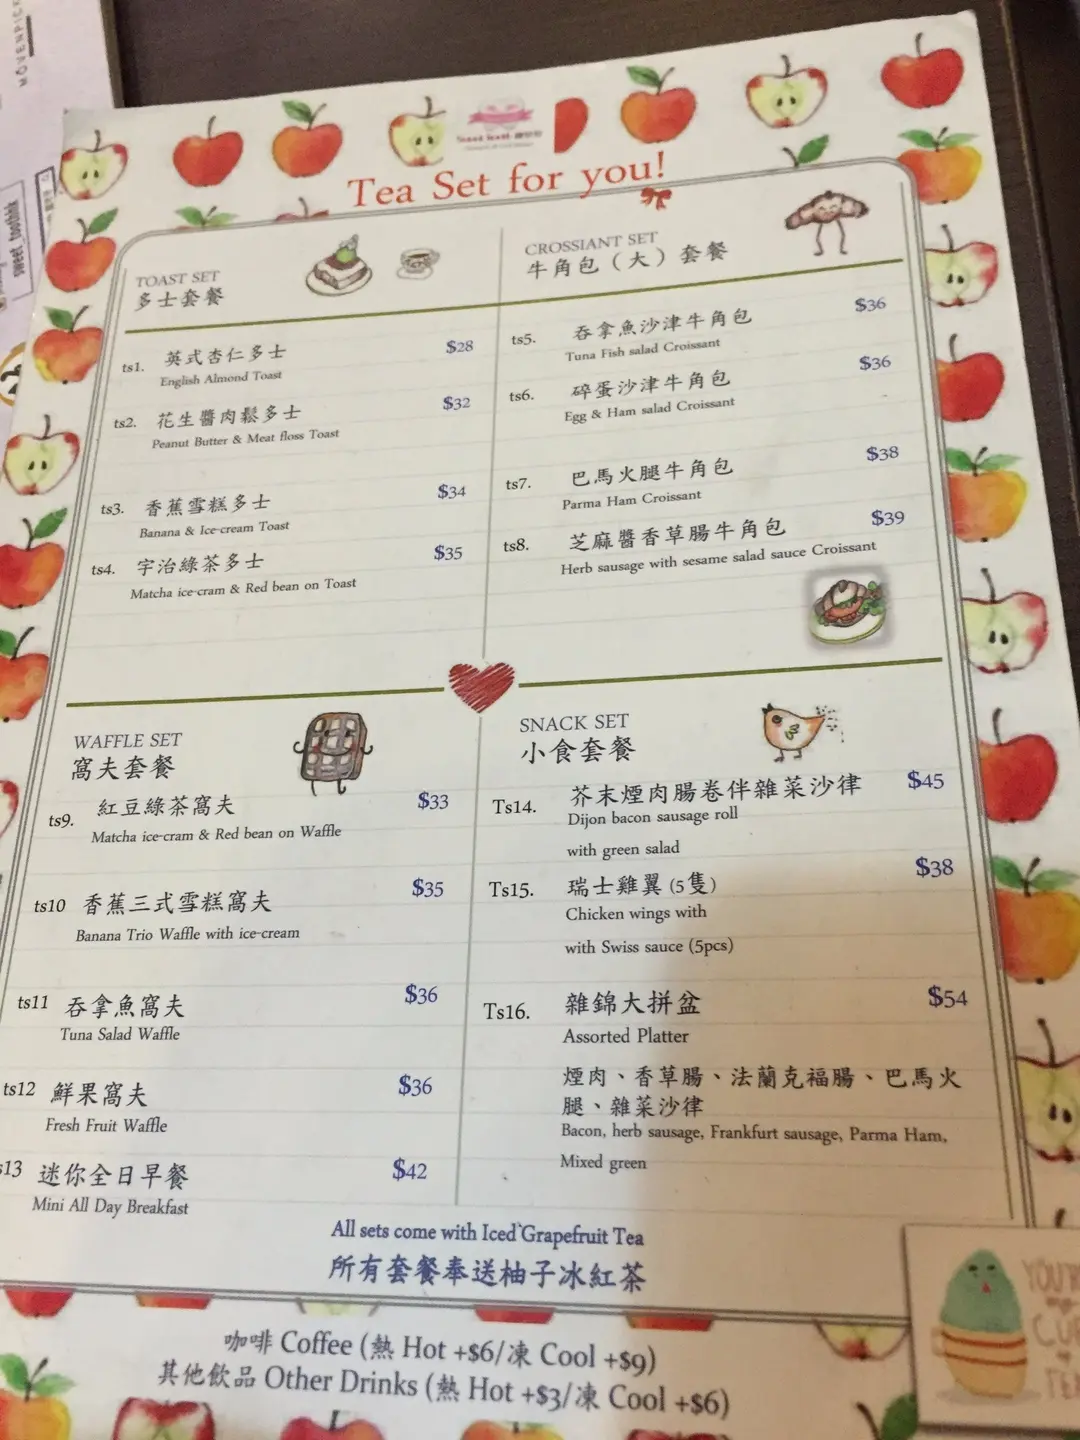 MÖVENPICK
sweet_toothhk
Tea Set for you!
TOAST SET
多士套餐
ts1. 英式杏仁多士 $28
English Almond Toast
ts2. 花生醬肉鬆多士 $32
Peanut Butter & Meat floss Toast
ts3. 香蕉雪糕多士 $34
Banana & Ice-cream Toast
ts4. 宇治綠茶多士 $35
Matcha ice-cram & Red bean on Toast
CROSSIANT SET
牛角包（大）套餐
ts5. 吞拿魚沙津牛角包 $36
Tuna Fish salad Croissant
ts6. 碎蛋沙津牛角包 $36
Egg & Ham salad Croissant
ts7. 巴馬火腿牛角包 $38
Parma Ham Croissant
ts8. 芝麻醬香草腸牛角包 $39
Herb sausage with sesame salad sauce Croissant
WAFFLE SET
窩夫套餐
ts9. 紅豆綠茶窩夫 $33
Matcha ice-cram & Red bean on Waffle
ts10 香蕉三式雪糕窩夫 $35
Banana Trio Waffle with ice-cream
ts11 吞拿魚窩夫 $36
Tuna Salad Waffle
ts12 鮮果窩夫 $36
Fresh Fruit Waffle
s13 迷你全日早餐 $42
Mini All Day Breakfast
SNACK SET
小食套餐
Ts14. 芥末煙肉腸卷伴雜菜沙律 $45
Dijon bacon sausage roll
with green salad
Ts15. 瑞士雞翼 (5隻) $38
Chicken wings with
with Swiss sauce (5pcs)
Ts16. 雜錦大拼盆 $54
Assorted Platter
煙肉、香草腸、法蘭克福腸、巴馬火
腿、雜菜沙律
Bacon, herb sausage, Frankfurt sausage, Parma Ham,
Mixed green
All sets come with Iced Grapefruit Tea
所有套餐奉送柚子冰紅茶
咖啡 Coffee (熱 Hot +$6/凍 Cool +$9)
其他飲品 Other Drinks (熱 Hot +$3/凍 Cool +$6)